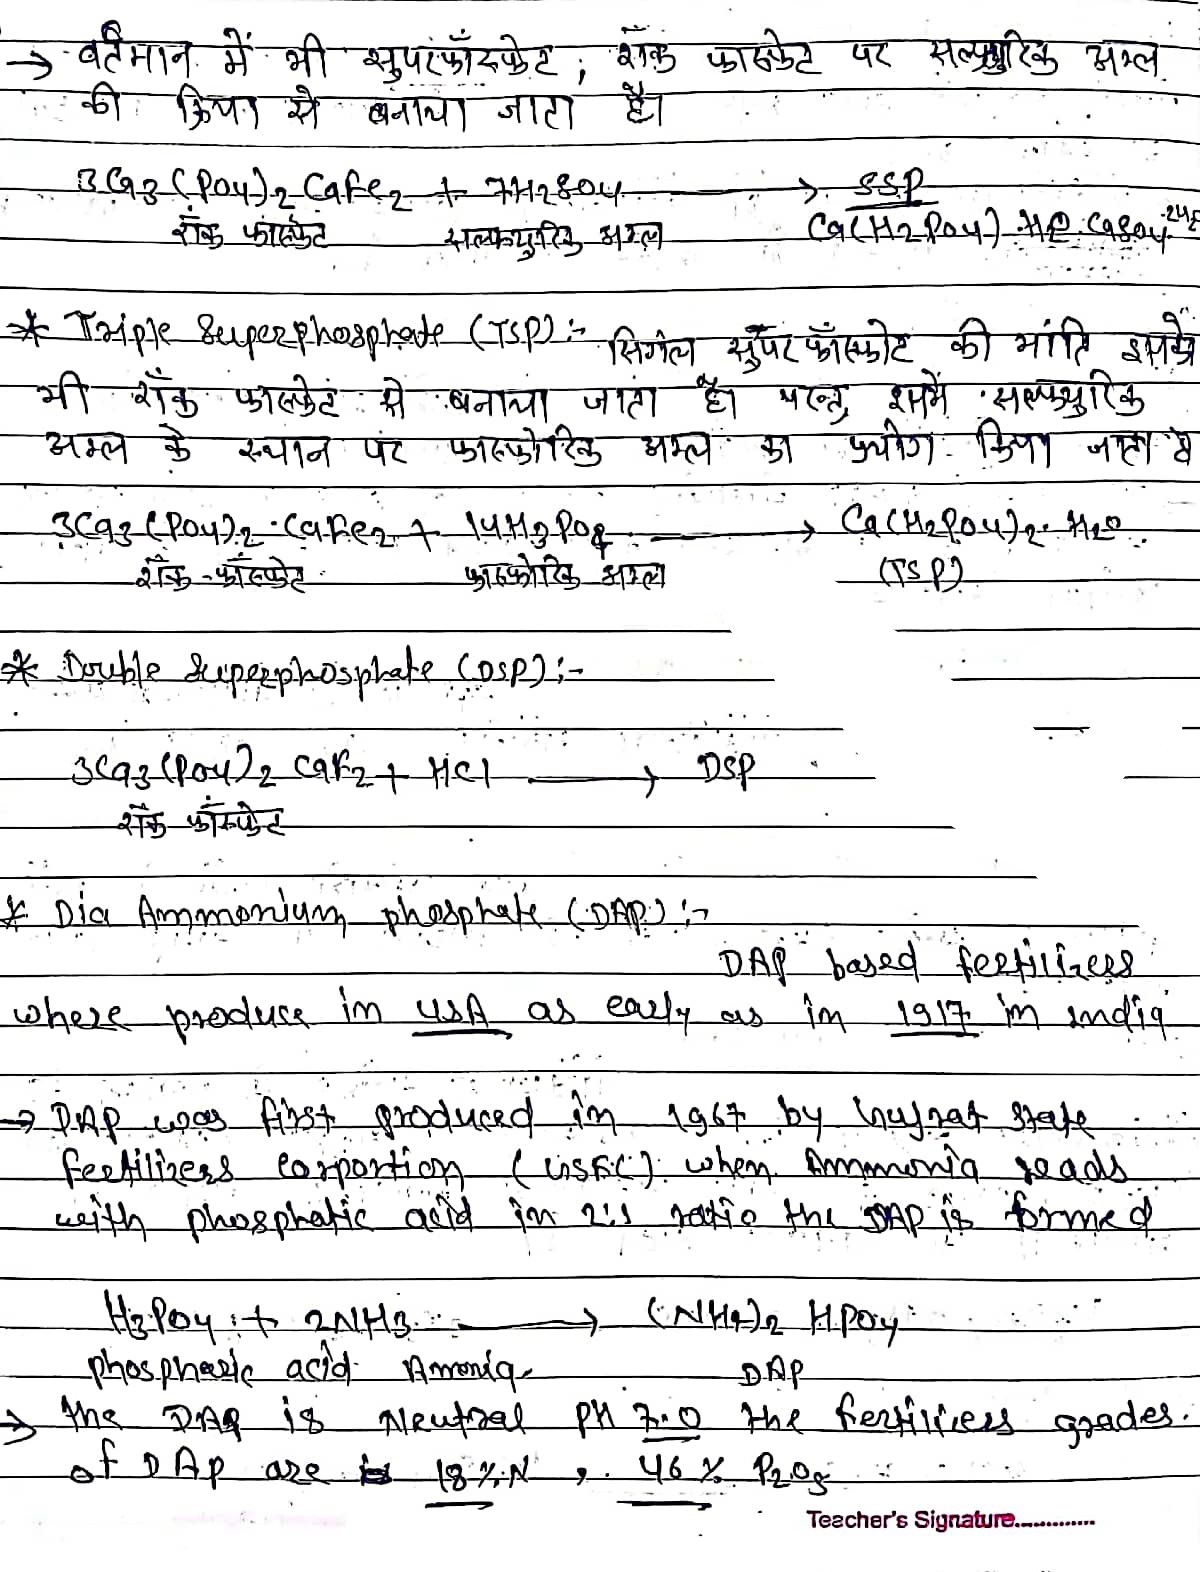 → वर्तमान में भी सुपरफॉस्फेट, रॉक फास्फेट पर सल्फ्युरिक अम्ल
की क्रिया से बनाया जाता है।
3Ca3(PO4)2 CaFe2 + 7H2SO4 → SSP
रॉक फास्फेट सल्फ्युरिक अम्ल Ca(H2PO4) H2O CaSO4
* Triple Superphosphate (TSP):- सिंगल सुपरफॉस्फेट की भांति इसको
भी रॉक फास्फेट से बनाया जाता है। परन्तु इसमें सल्फ्युरिक
अम्ल के स्थान पर फास्फोरिक अम्ल का प्रयोग किया जाता है
3Ca3(PO4)2.CaFe2 + 14H3PO4 → Ca(H2PO4)2.H2O
रॉक-फॉस्फेट फास्फोरिक अम्ल (TSP)
* Double Superphosphate (DSP):-
3Ca3(PO4)2 CaF2 + HCl → DSP
रॉक फॉस्फेट
* Dia Ammonium phosphate (DAP):-
DAP based fertilizers
where produce in USA as early as in 1917 in India
→ DAP was first produced in 1967 by Gujrat State
fertilizers corportion (GSFC) when Ammonia reads
with phosphatic acid in 2:1 ratio the DAP is formed
H3PO4 + 2NH3 → (NH4)2 HPO4
acid Amonia DAP
→ the DAP is Neutral PH 7.0 the fertilizers grades
of DAP are 18% N, 46% P2O5
Teacher's Signature.............